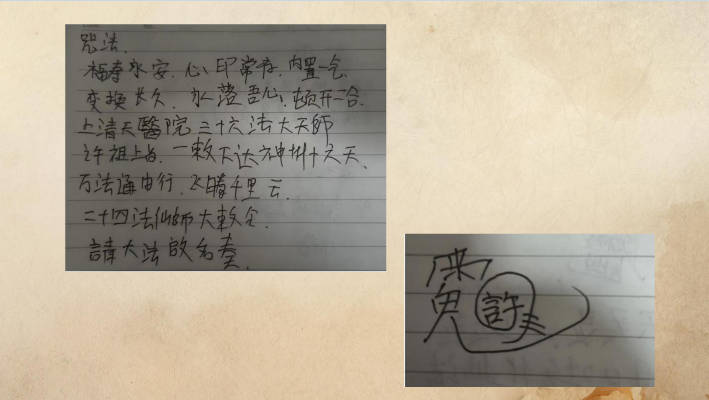 咒法.
福寿永安.心印常存.内置一气
变换长久.水落吾心.顿开二合.
上清天醫院三十六法大天師
许祖上启.一敕下达神州十六天.
万法通由行.飞腾千里云.
二十四法仙师大敕令.
請大法啟名奏.
許